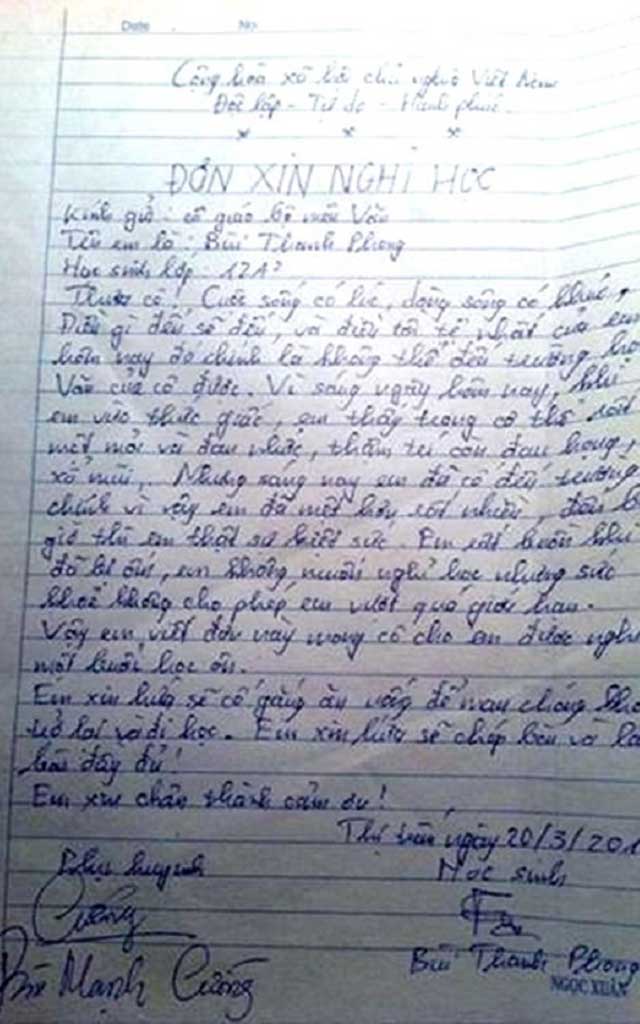 Date No
Cộng hòa xã hội chủ nghĩa Việt Nam
Độc lập - Tự do - Hạnh phúc.
ĐƠN XIN NGHỈ HỌC
Kính gửi : cô giáo bộ môn Văn
Tên em là : Bùi Thanh Phong
Học sinh lớp : 12A2
Thưa cô! Cuộc sống có lúc, dòng sông có khúc,
Điều gì đến sẽ đến, và điều tồi tệ nhất của em
hôm nay đó chính là không thể đến trường học
Văn của cô được. Vì sáng ngày hôm nay, khi
em vừa thức giấc, em thấy trong cơ thể rất
mệt mỏi và đau nhức, thậm trí còn đau họng,
xổ mũi. Nhưng sáng nay em đã cố đến trường
chính vì vậy em đã mệt hơn rất nhiều, đến b
giờ thì em thật sự kiệt sức. Em rất buồn khi
đã bị ốm, em không muốn nghỉ học nhưng sức
khoẻ không cho phép em vượt quá giới hạn.
Vậy em viết đơn này mong cô cho em được nghỉ
một buổi học ôn.
Em xin hứa sẽ cố gắng ăn uống để mau chóng khỏ
trở lại và đi học. Em xin hứa sẽ chép bài và là
bài đầy đủ!
Em xin chân thành cảm ơn!
Thị trấn, ngày 20/3/201
Phụ huynh Học sinh
Cường
Bùi Mạnh Cường Bùi Thanh Phong
NGỌC XUÂN